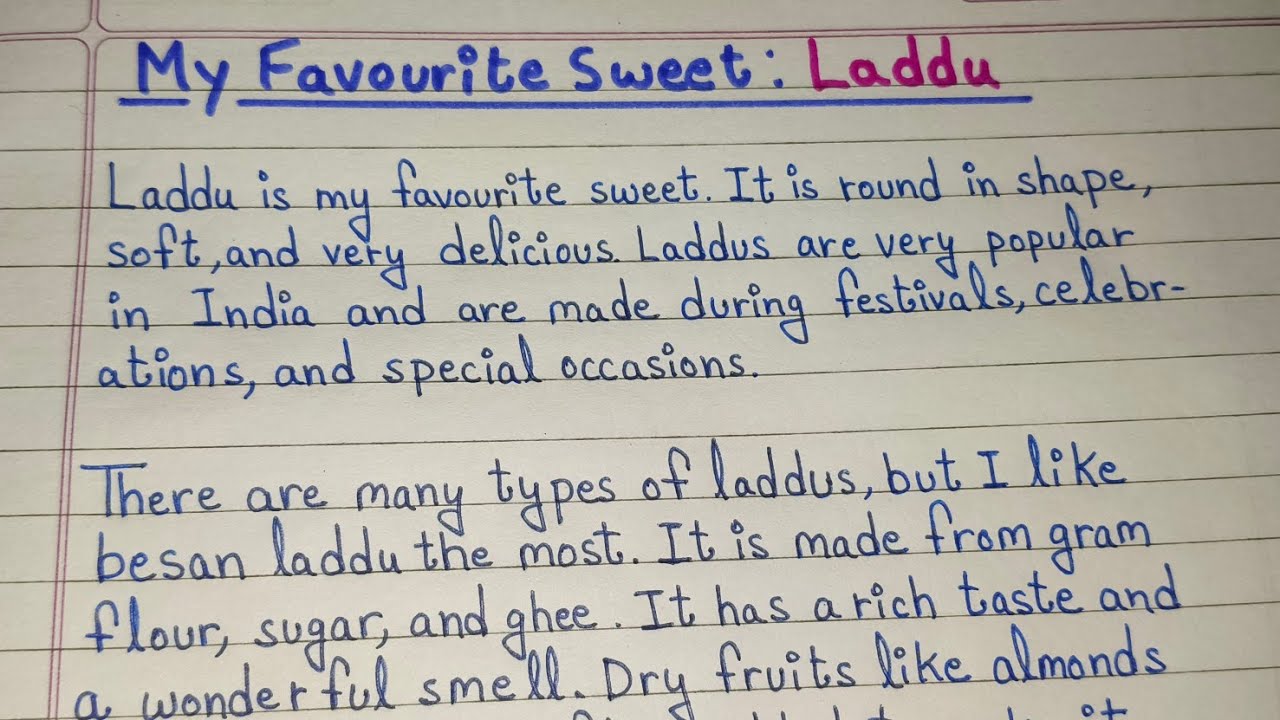 My Favourite Sweet: Laddu
Laddu is my favourite sweet. It is round in shape,
soft, and very delicious. Laddus are very popular
in India and are made during festivals, celebr-
ations, and special occasions.
There are many types of laddus, but I like
besan laddu the most. It is made from gram
flour, sugar, and ghee. It has a rich taste and
a wonderful smell. Dry fruits like almonds